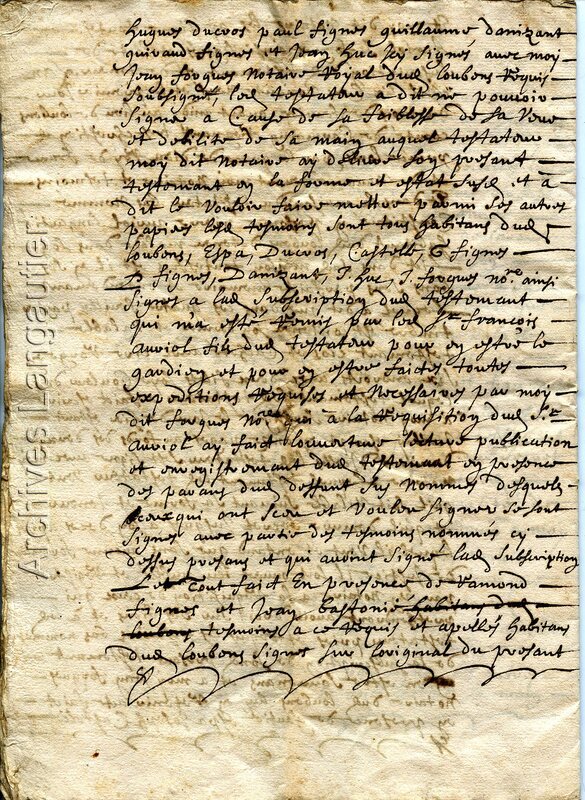 hugues ducros paul fignes guillaume danizant
guiraud fignes et Jean huc icy signés avec moy
Jean forgues Notaire Royal dud loubens requis
soubsigné, led testateur a dit ne pouvoir
signer a Cause de la faiblesse de sa veue
et debilite de sa main, auquel testateur
moy dit Notaire ay délivré son presant
testemant en la forme et estat susd et à
dit le vouloir faire mettre parmi ses autres
papiers lesd tesmoins sont tous habitans dud
loubens, Espa, Ducros, Castella, G fignes
P fignes, Danizant, J huc, J forgues nore ainsi
signes a lad subscription dud testemant
qui m'a esté remis par led Sr françois
auriol fils dud testateur pour en estre le
gardien et pour en estre faictes toutes
expeditions requises et necessaires par moy
dit forgues nore qui à la requisition dud Sr
auriol ay faict louverture lecture publication
et enregistremant dud testemant en presence
des parans dud deffant sus nommes desquels
ceux qui ont sceu et voulen signer se sont
signés avec partie des tesmoins nommés cy
dessus presans et qui avoint signé lad subscription
Le tout faict En presence de ramond
fignes et Jean bastonié habitans dud
loubens tesmoins a ce requis et apellés habitans
dud loubens signes sur loriginal du presant
Archives Langautier